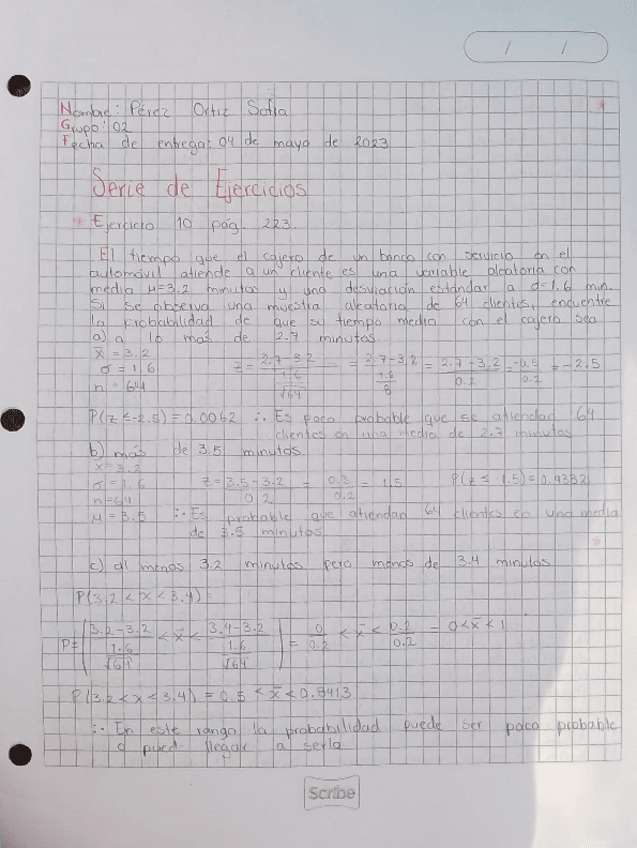 / /
Nombre: Pérez Ortiz Sofía
Grupo: 02
Fecha de entrega: 04 de mayo de 2023
Serie de Ejercicios
* Ejercicio 10 pág. 223.
El tiempo que el cajero de un banco con servicio en el
automóvil atiende a un cliente es una variable aleatoria con
media μ=3.2 minutos y una desviación estándar a σ=1.6 min.
Si se observa una muestra aleatoria de 64 clientes, encuentre
la probabilidad de que su tiempo medio con el cajero sea
a) a lo mas de 2.7 minutos
x̄ = 3.2
σ = 1.6
n = 64
z = (2.7-3.2)/(1.6/√64) = (2.7-3.2)/(1.6/8) = (2.7-3.2)/0.2 = -0.5/0.2 = -2.5
P(z ≤ -2.5) = 0.0062 ∴ Es poco probable que se atiendad 64
clientes en una media de 2.7 minutos
b) más de 3.5 minutos.
x = 3.2
σ = 1.6
n = 64
μ = 3.5
z = (3.5-3.2)/0.2 = 0.3/0.2 = 1.5 P(z ≤ 1.5) = 0.9332
∴ Es probable que atiendan 64 clientes en una media
de 3.5 minutos
c) al menos 3.2 minutos pero menos de 3.4 minutos
P(3.2 < x < 3.4) =
P = ((3.2-3.2)/(1.6/√64) < x̄ < (3.4-3.2)/(1.6/√64)) = 0/0.2 < x̄ < 0.2/0.2 = 0 < x̄ < 1
P(3.2 < x < 3.4) = 0.5 < x̄ < 0.8413
∴ En este rango la probabilidad puede ser poco probable
o pued llegar a serlo
Scribe